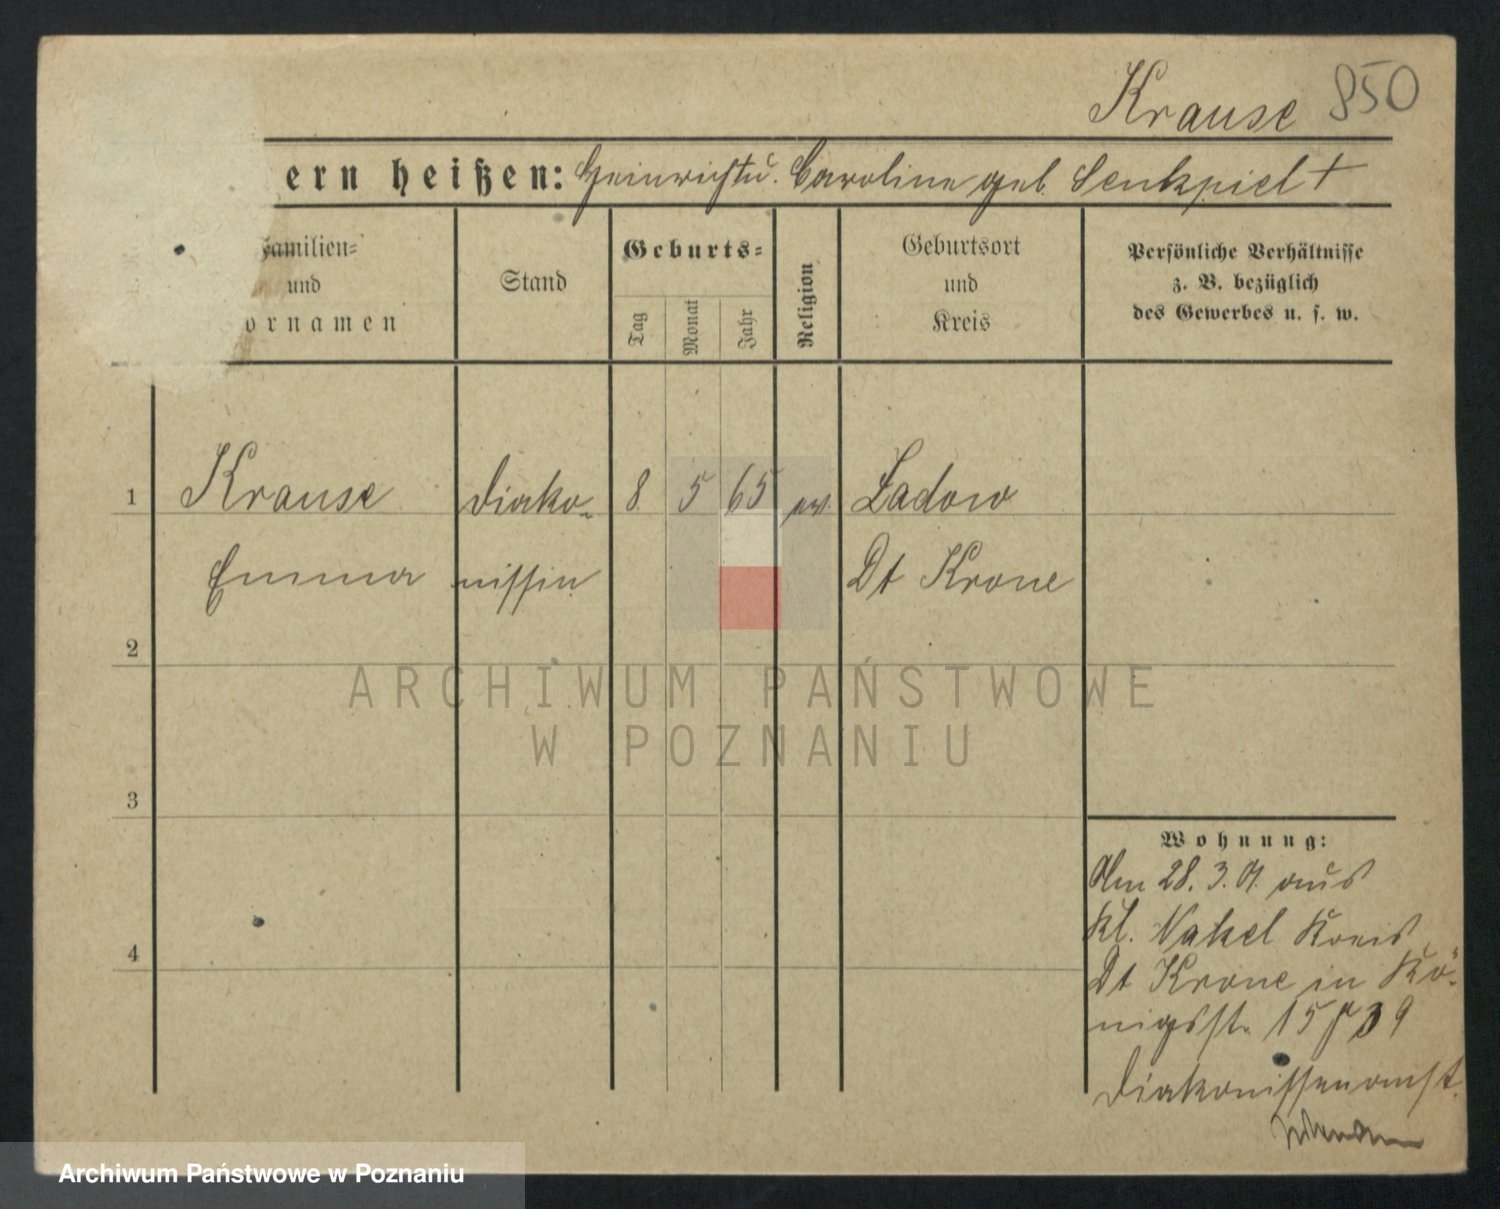 Krause 850
ern heißen: Heinrich u. Caroline geb. Senkpiel †
Familien=
und
ornamen
Stand
Geburts=
Tag
Monat
Jahr
Religion
Geburtsort
und
Kreis
Persönliche Verhältnisse
z. B. bezüglich
des Gewerbes u. s. w.
1 Krause Diako- 8 5 65 ev. Zadow
Emma nissin Dt Krone
2
ARCHIWUM PAŃSTWOWE
W POZNANIU
3
Wohnung:
Am 28. 3. 01. aus
Kl. Nakel Kreis
4
Dt Krone in Kö-
nigsstr. 15 39
Diakonissenanst.
Archiwum Państwowe w Poznaniu